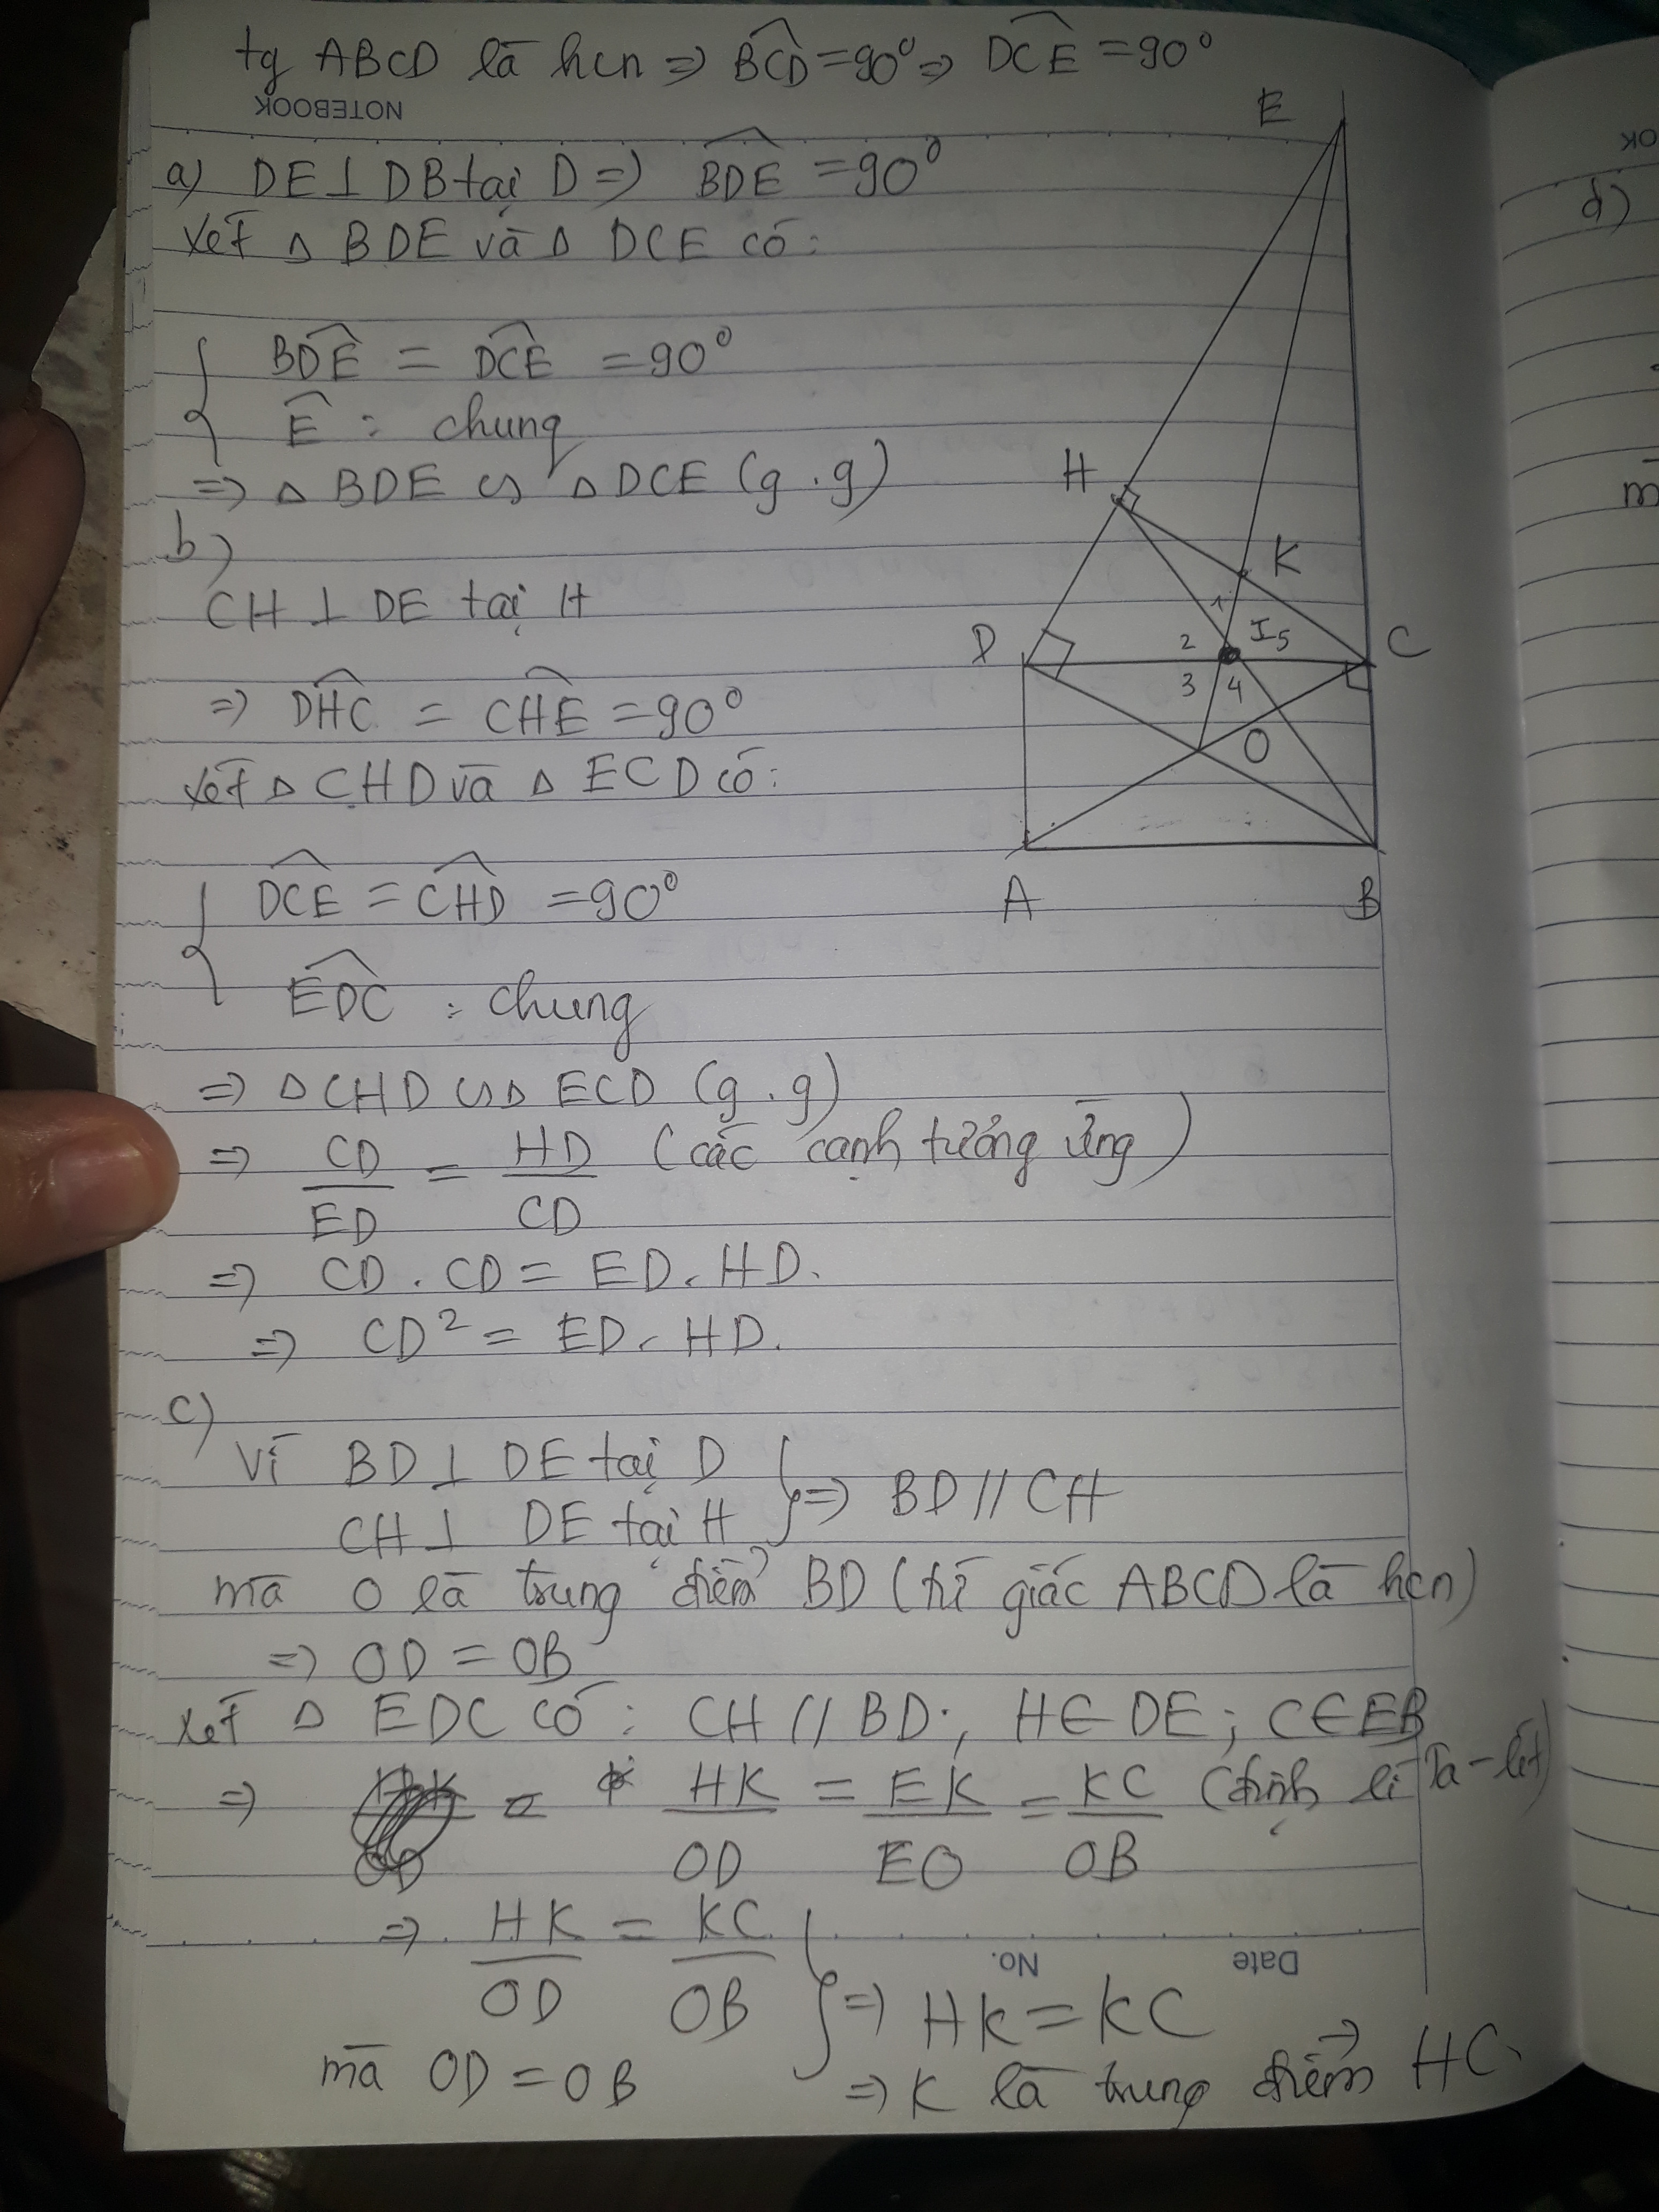 tg ABCD là hcn => BCD = 90° => DCE = 90°
NOTEBOOK
a) DE ⊥ DB tại D => BDE = 90°
Xét Δ BDE và Δ DCE có:
BDE = DCE = 90°
E : chung
=> Δ BDE ᔕ Δ DCE (g.g)
b)
CH ⊥ DE tại H
=> DHC = CHE = 90°
Xét Δ CHD và Δ ECD có:
DCE = CHD = 90°
EDC : chung
=> Δ CHD ᔕ Δ ECD (g.g)
=> CD/ED = HD/CD (các cạnh tương ứng)
=> CD . CD = ED . HD.
=> CD² = ED . HD.
c)
Vì BD ⊥ DE tại D
CH ⊥ DE tại H } => BD // CH
mà O là trung điểm BD (tứ giác ABCD là hcn)
=> OD = OB
Xét Δ EDC có: CH // BD; H ∈ DE; C ∈ EB
=> HK/OD = EK/EO = KC/OB (định lí Ta-lét)
=> HK/OD = KC/OB
mà OD = OB } => HK = KC
=> K là trung điểm HC.
No.
Date
E
H
K
D
1
2
I
5
C
3
4
O
A
B
OK
d)
m